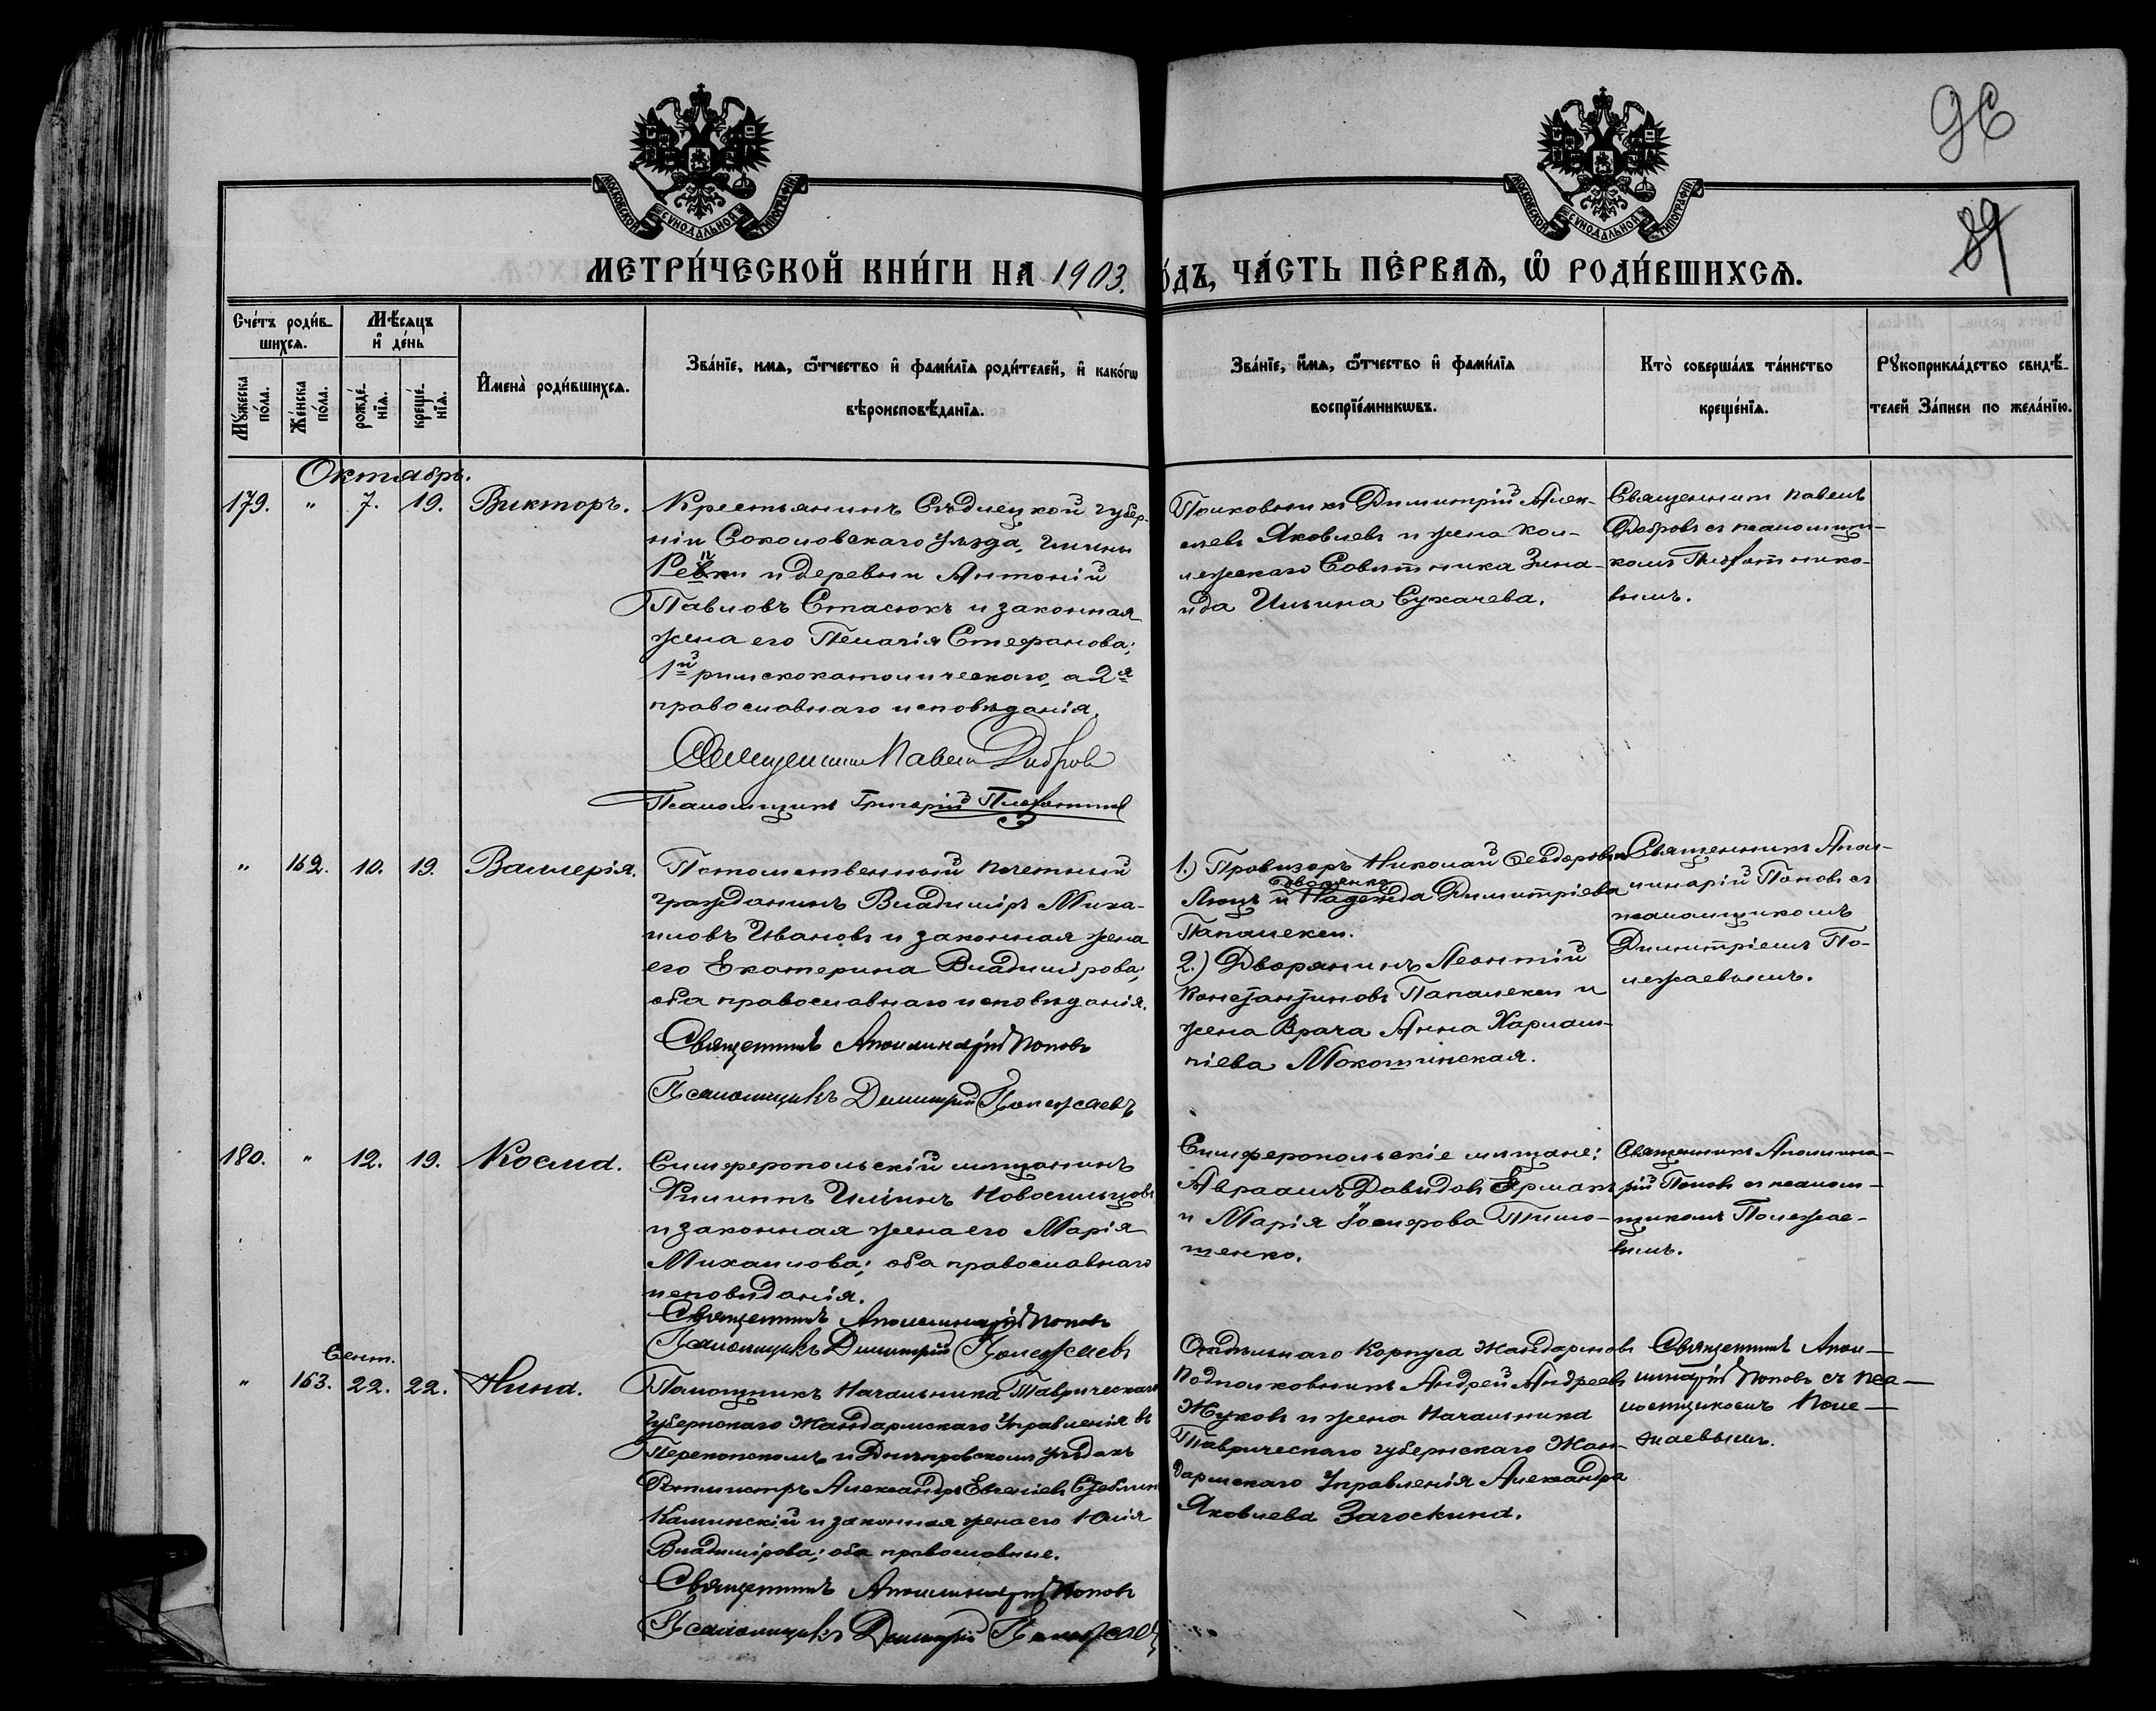 МОСКОВСКОЙ СУНОДАЛЬНОЙ ТИПОГРАФІИ
МОСКОВСКОЙ СУНОДАЛЬНОЙ ТИПОГРАФІИ
89
МЕТРИ́ЧЕСКОЙ КНИ́ГИ НА 1903.
О́ДЪ, ЧА́СТЬ ПЕ́РВАЯ, Ѽ РОДИ́ВШИХСЯ.
Сче́тъ роди́в-
шихся.
Мѣ́сяцъ
и де́нь
Му́жеска
по́ла.
Же́нска
по́ла.
рожде́-
нія.
креще́-
нія.
Имена̀ роди́вшихся.
Зва́ніе, имя, ѻ҆́тчество и фами́лія роди́телей, и како́гѡ
вѣроисповѣ́данія.
Зва́ніе, и́мя, ѻ҆́тчество и фами́лія
воспріе́мникѡвъ.
Кто̀ соверша́лъ та́инство
креще́нія.
Рукоприкла́дство свидѣ́-
телей за́писи по жела́нію.
Октябрь.
179. " 7. 19. Викторъ.
Крестьянинъ Сѣдлецкой губер-
ніи Соколовскаго уѣзда, гмины
и деревни Антоній
Павловъ Стасюкъ и законная
жена его Пелагія Стефанова;
1й римскокатолическаго, а 2я
православнаго исповѣданія.
Священникъ Павелъ Добровъ
Псаломщикъ Григорій
Полковникъ Димитрій Алек-
сѣевъ Яковлевъ и жена Кол-
лежскаго Совѣтника Зина-
ида Ильина Сухачева.
Священникъ Павелъ
Добровъ съ псаломщи-
комъ
вымъ.
" 162. 10. 19. Валлерія.
Потомственный почетный
гражданинъ Владиміръ Миха-
иловъ Ивановъ и законная жена
его Екатерина Владимірова;
оба православнаго исповѣданія.
Священникъ Аполлинарій Поповъ
Псаломщикъ Димитрій Полежаевъ
1.) Провизоръ Николай Ѳеодоровъ
дворянка
и Надежда Димитріева
Папалекси.
2.) Дворянинъ Леонтій
Константиновъ Папалекси и
жена Врача Анна Харлам-
піева Мокошинская.
Священникъ Апол-
линарій Поповъ съ
псаломщикомъ
Димитріемъ По-
лежаевымъ.
180. " 12. 19. Косма.
Симферопольскій мѣщанинъ
Филиппъ Ильинъ Новосильцовъ
и законная жена его Марія
Михаилова; оба православнаго
исповѣданія.
Священникъ Аполлинарій Поповъ
Псаломщикъ Димитрій Полежаевъ
Симферопольскіе мѣщане:
Авраамъ Давидовъ Ермакъ
и Марія Іосифова Тимо-
шенко.
Священникъ Аполлина-
рій Поповъ съ псалом-
щикомъ Полежае-
вымъ.
Сент.
" 163. 22. 22. Нина.
Помощникъ Начальника Таврическаго
Губернскаго Жандармскаго Управленія въ
Перекопскомъ и Днѣпровскомъ уѣздахъ
Ротмистръ Александръ Евгеніевъ Стеблинъ
Каминскій и законная жена его Юлія
Владимірова; оба православные.
Священникъ Аполлинарій Поповъ
Псаломщикъ Димитрій Полежаевъ
Отдѣльнаго Корпуса Жандармовъ
Подполковникъ Андрей Андреевъ
Жуковъ и жена Начальника
Таврическаго губернскаго Жан-
дармскаго Управленія Александра
Яковлева Загоскина.
Священникъ Апол-
линарій Поповъ съ пса-
ломщикомъ Поле-
жаевымъ.